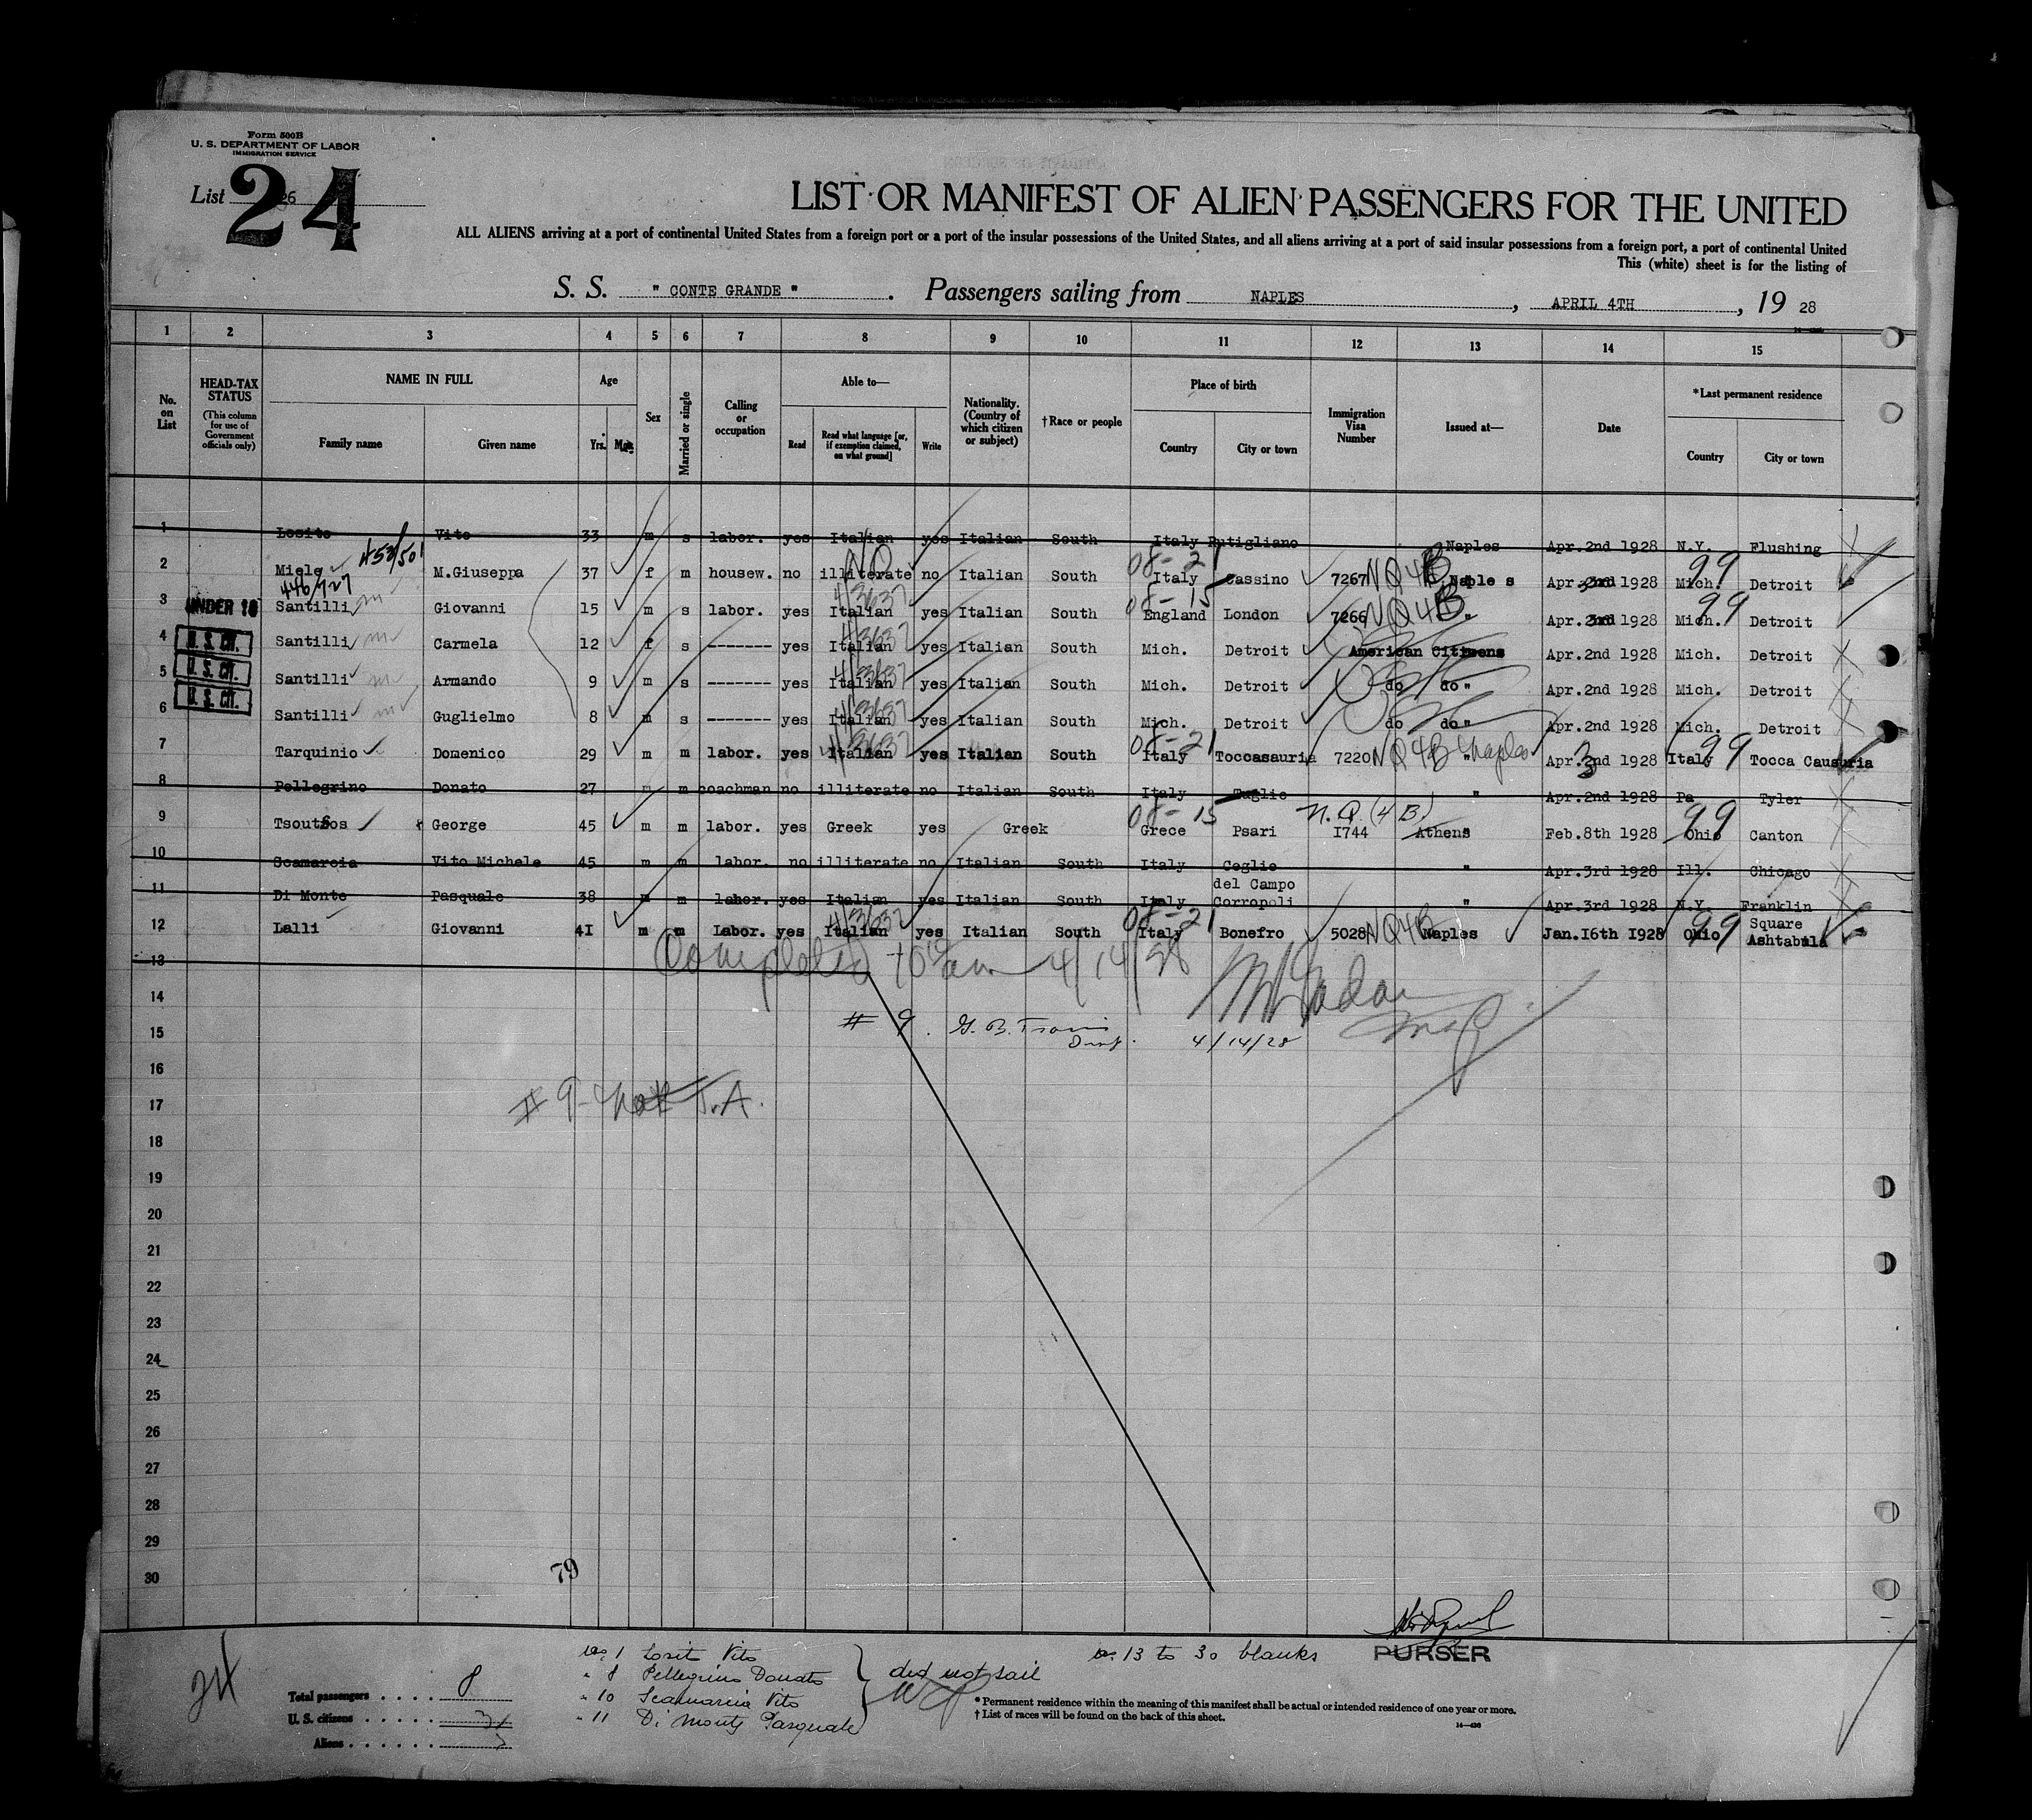 Form 500B
U. S. DEPARTMENT OF LABOR
IMMIGRATION SERVICE
List 26
24
LIST OR MANIFEST OF ALIEN PASSENGERS FOR THE UNITED
ALL ALIENS arriving at a port of continental United States from a foreign port or a port of the insular possessions of the United States, and all aliens arriving at a port of said insular possessions from a foreign port, a port of continental United
This (white) sheet is for the listing of
S. S. " CONTE GRANDE " . Passengers sailing from NAPLES , APRIL 4TH , 19 28
1 2 3 4 5 6 7 8 9 10 11 12 13 14 15
No. on List
HEAD-TAX STATUS (This column for use of Government officials only)
NAME IN FULL Family name Given name
Age Yrs. Mos.
Sex
Married or single
Calling or occupation
Able to— Read Read what language [or, if exemption claimed, on what ground] Write
Nationality. (Country of which citizen or subject)
†Race or people
Place of birth Country City or town
Immigration Visa Number
Issued at—
Date
*Last permanent residence Country City or town
1 Losito Vito 33 m s labor. yes Italian yes Italian South Italy Rutigliano Naples Apr. 2nd 1928 N.Y. Flushing
453/501 NO 08-21 99
2 Miele M.Giuseppa 37 f m housew. no illiterate no Italian South Italy Cassino 7267 NQ4B Naple s Apr. 1928 Mich. Detroit
446/727 4/3637 08-15 99
3 UNDER 16 Santilli Giovanni 15 m s labor. yes Italian yes Italian South England London 7266 NQ4B " Apr. 1928 Mich. Detroit
4 U. S. CIT. Santilli Carmela 12 f s ------- yes Italian yes Italian South Mich. Detroit American Citizens Apr.2nd 1928 Mich. Detroit
5 U. S. CIT. Santilli Armando 9 m s ------- yes Italian yes Italian South Mich. Detroit do do " Apr.2nd 1928 Mich. Detroit
6 U. S. CIT. Santilli Guglielmo 8 m s ------- yes Italian yes Italian South Mich. Detroit do do " Apr.2nd 1928 Mich. Detroit
08-21 99
7 Tarquinio Domenico 29 m m labor. yes Italian yes Italian South Italy Toccasauria 7220 NQ4B Naples " Apr. 3 1928 Italy Tocca Causuria
8 Pellegrino Donato 27 m m coachman no illiterate no Italian South Italy Tuglie " Apr.2nd 1928 Pa Tyler
08-15 N.Q.(4B) 99
9 Tsoutsos George 45 m m labor. yes Greek yes Greek Grece Psari I744 Athens Feb.8th 1928 Ohio Canton
10 Scamarcia Vito Michele 45 m m labor. no illiterate no Italian South Italy Ceglie del Campo " Apr.3rd 1928 Ill. Chicago
11 Di Monte Pasquale 38 m m labor. yes Italian yes Italian South Italy Corropoli " Apr.3rd 1928 N.Y. Franklin Square
4/3637 08-21 99
12 Lalli Giovanni 4I m m Labor. yes Italian yes Italian South Italy Bonefro 5028 NQ4B Naples Jan.I6th I928 Ohio Ashtabula
13
Completed 10 am 4/14/28
14
15
# 9. G. B. 4/14/28
16
17
# 9 - Not T.A.
18
19
20
21
22
23
24
25
26
27
28
29
30
79
PURSER
24
Total passengers . . . . 8
U. S. citizens . . . . . 3
Aliens . . . . . . 5
no. 1 Losito Vito
" 8 Pellegrino Donato
" 10 Scamarcia Vito
" 11 Di Monte Pasquale
did not sail
no. 13 to 30 blanks
* Permanent residence within the meaning of this manifest shall be actual or intended residence of one year or more.
† List of races will be found on the back of this sheet.